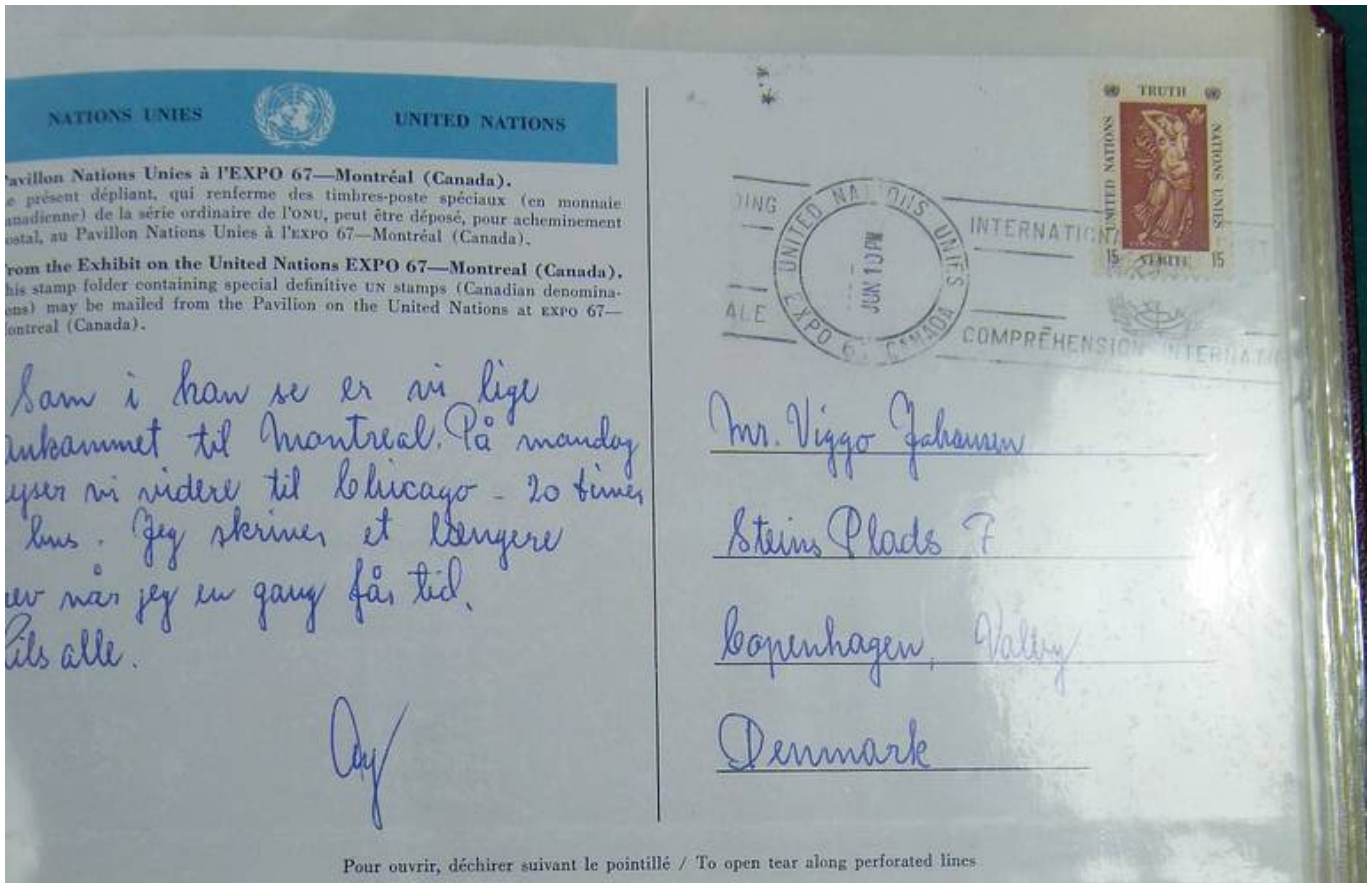 NATIONS UNIES UNITED NATIONS
Pavillon Nations Unies à l'EXPO 67—Montréal (Canada).
e présent dépliant, qui renferme des timbres-poste spéciaux (en monnaie
anadienne) de la série ordinaire de l'ONU, peut être déposé, pour acheminement
ostal, au Pavillon Nations Unies à l'EXPO 67—Montréal (Canada).
rom the Exhibit on the United Nations EXPO 67—Montreal (Canada).
his stamp folder containing special definitive UN stamps (Canadian denomina-
ons) may be mailed from the Pavilion on the United Nations at EXPO 67—
ontreal (Canada).
Som i kan se er vi lige
ankommet til Montreal. På mandag
ejser vi videre til Chicago - 20 timer
bus. Jeg skriver et længere
rev når jeg en gang får tid.
ils alle.
TRUTH
UNITED NATIONS
NATIONS UNIES
15 VÉRITÉ 15
DING
ALE
UNITED NATIONS UNIES
EXPO 67 CANADA
JUN 10 PM
INTERNATIONA
COMPRÉHENSION INTERNATIO
Mr. Viggo Johansen
Steins Plads 7
Copenhagen, Valby
Denmark
Pour ouvrir, déchirer suivant le pointillé / To open tear along perforated lines